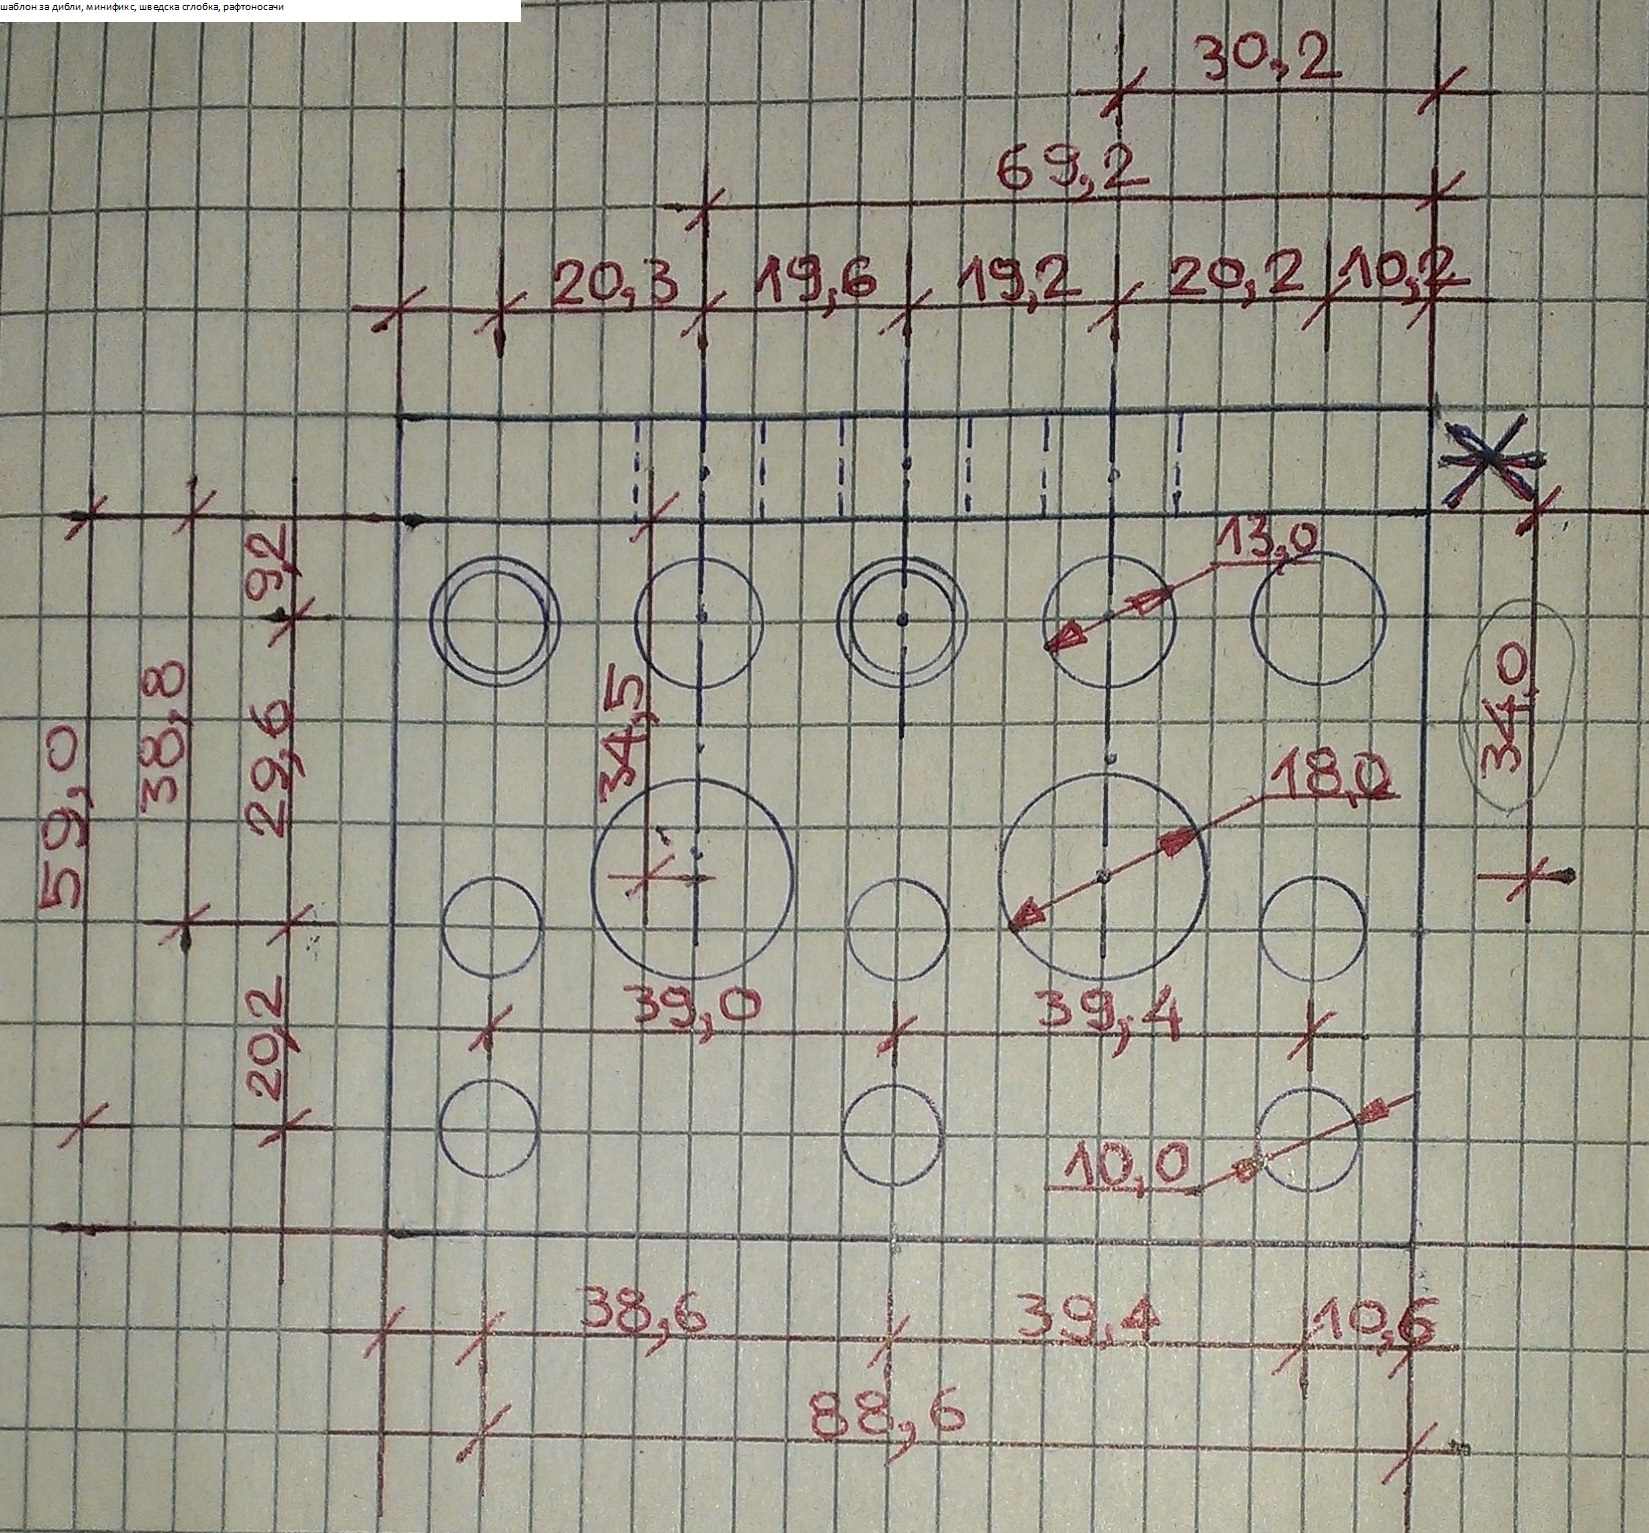 шаблон за дибли, минификс, шведска сглобка, рафтоносачи
30,2
69,2
20,3 19,6 19,2 20,2 10,2
13,0
92
34,5
34,0
38,8
29,6
59,0
18,0
39,0 39,4
20,2
10,0
38,6 39,4 10,6
88,6